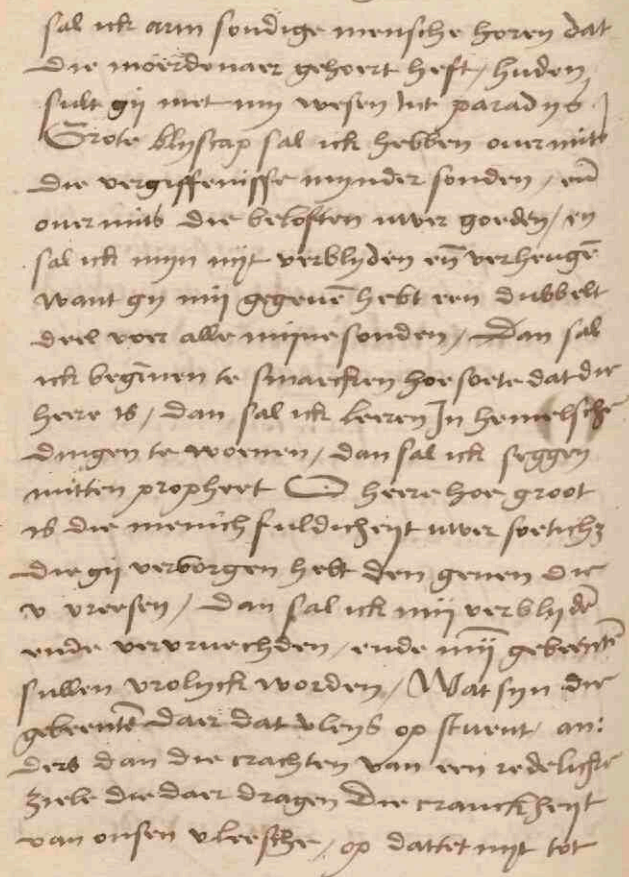 sal ick arm sondige mensche horen dat
die moerdenaer gehoert heft / huden
sult gij met my wesen Int paradijs
Grote blijscap sal ick hebben ouermits
die vergiffenisse mynder sonden / en̄
ouermits die beloften uwer goeden / en
sal ick myn nyt verblyden en̄ verheugē
want gy mij gegeuē hebt een dubbelt
deel voer alle mijne sonden / Dan sal
ick begīnen te smaecken hoe soete dat die
heere is / dan sal ick leeren In hemelsche
dingen te woenen / dan sal ick seggen
mitten propheet O heere hoe groot
is die menichfuldicheijt uwer soetichz
die gij verborgen hebt den genen die
v vreesen / Dan sal ick mij verblydē
ende vervruechden / ende mīj gebeentē
sullen vrolyck worden / Wat syn die
gebeentē daer dat vleys op stuent / an:
ders dan die crachten van een redelicke
ziele die daer dragen Die cranckheijt
van onsen vleesche / op dattet nyt tot